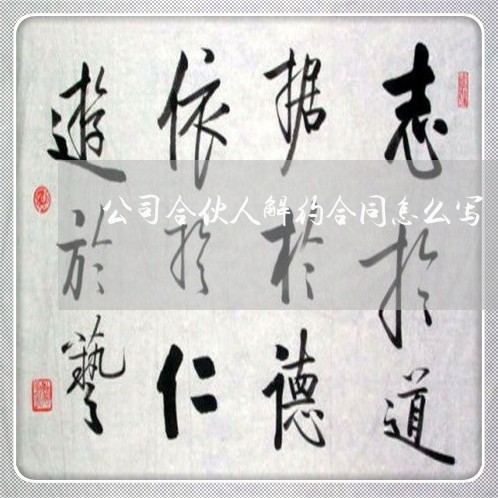 志於道
据於德
依於仁
遊於藝
公司合伙人解约合同怎么写